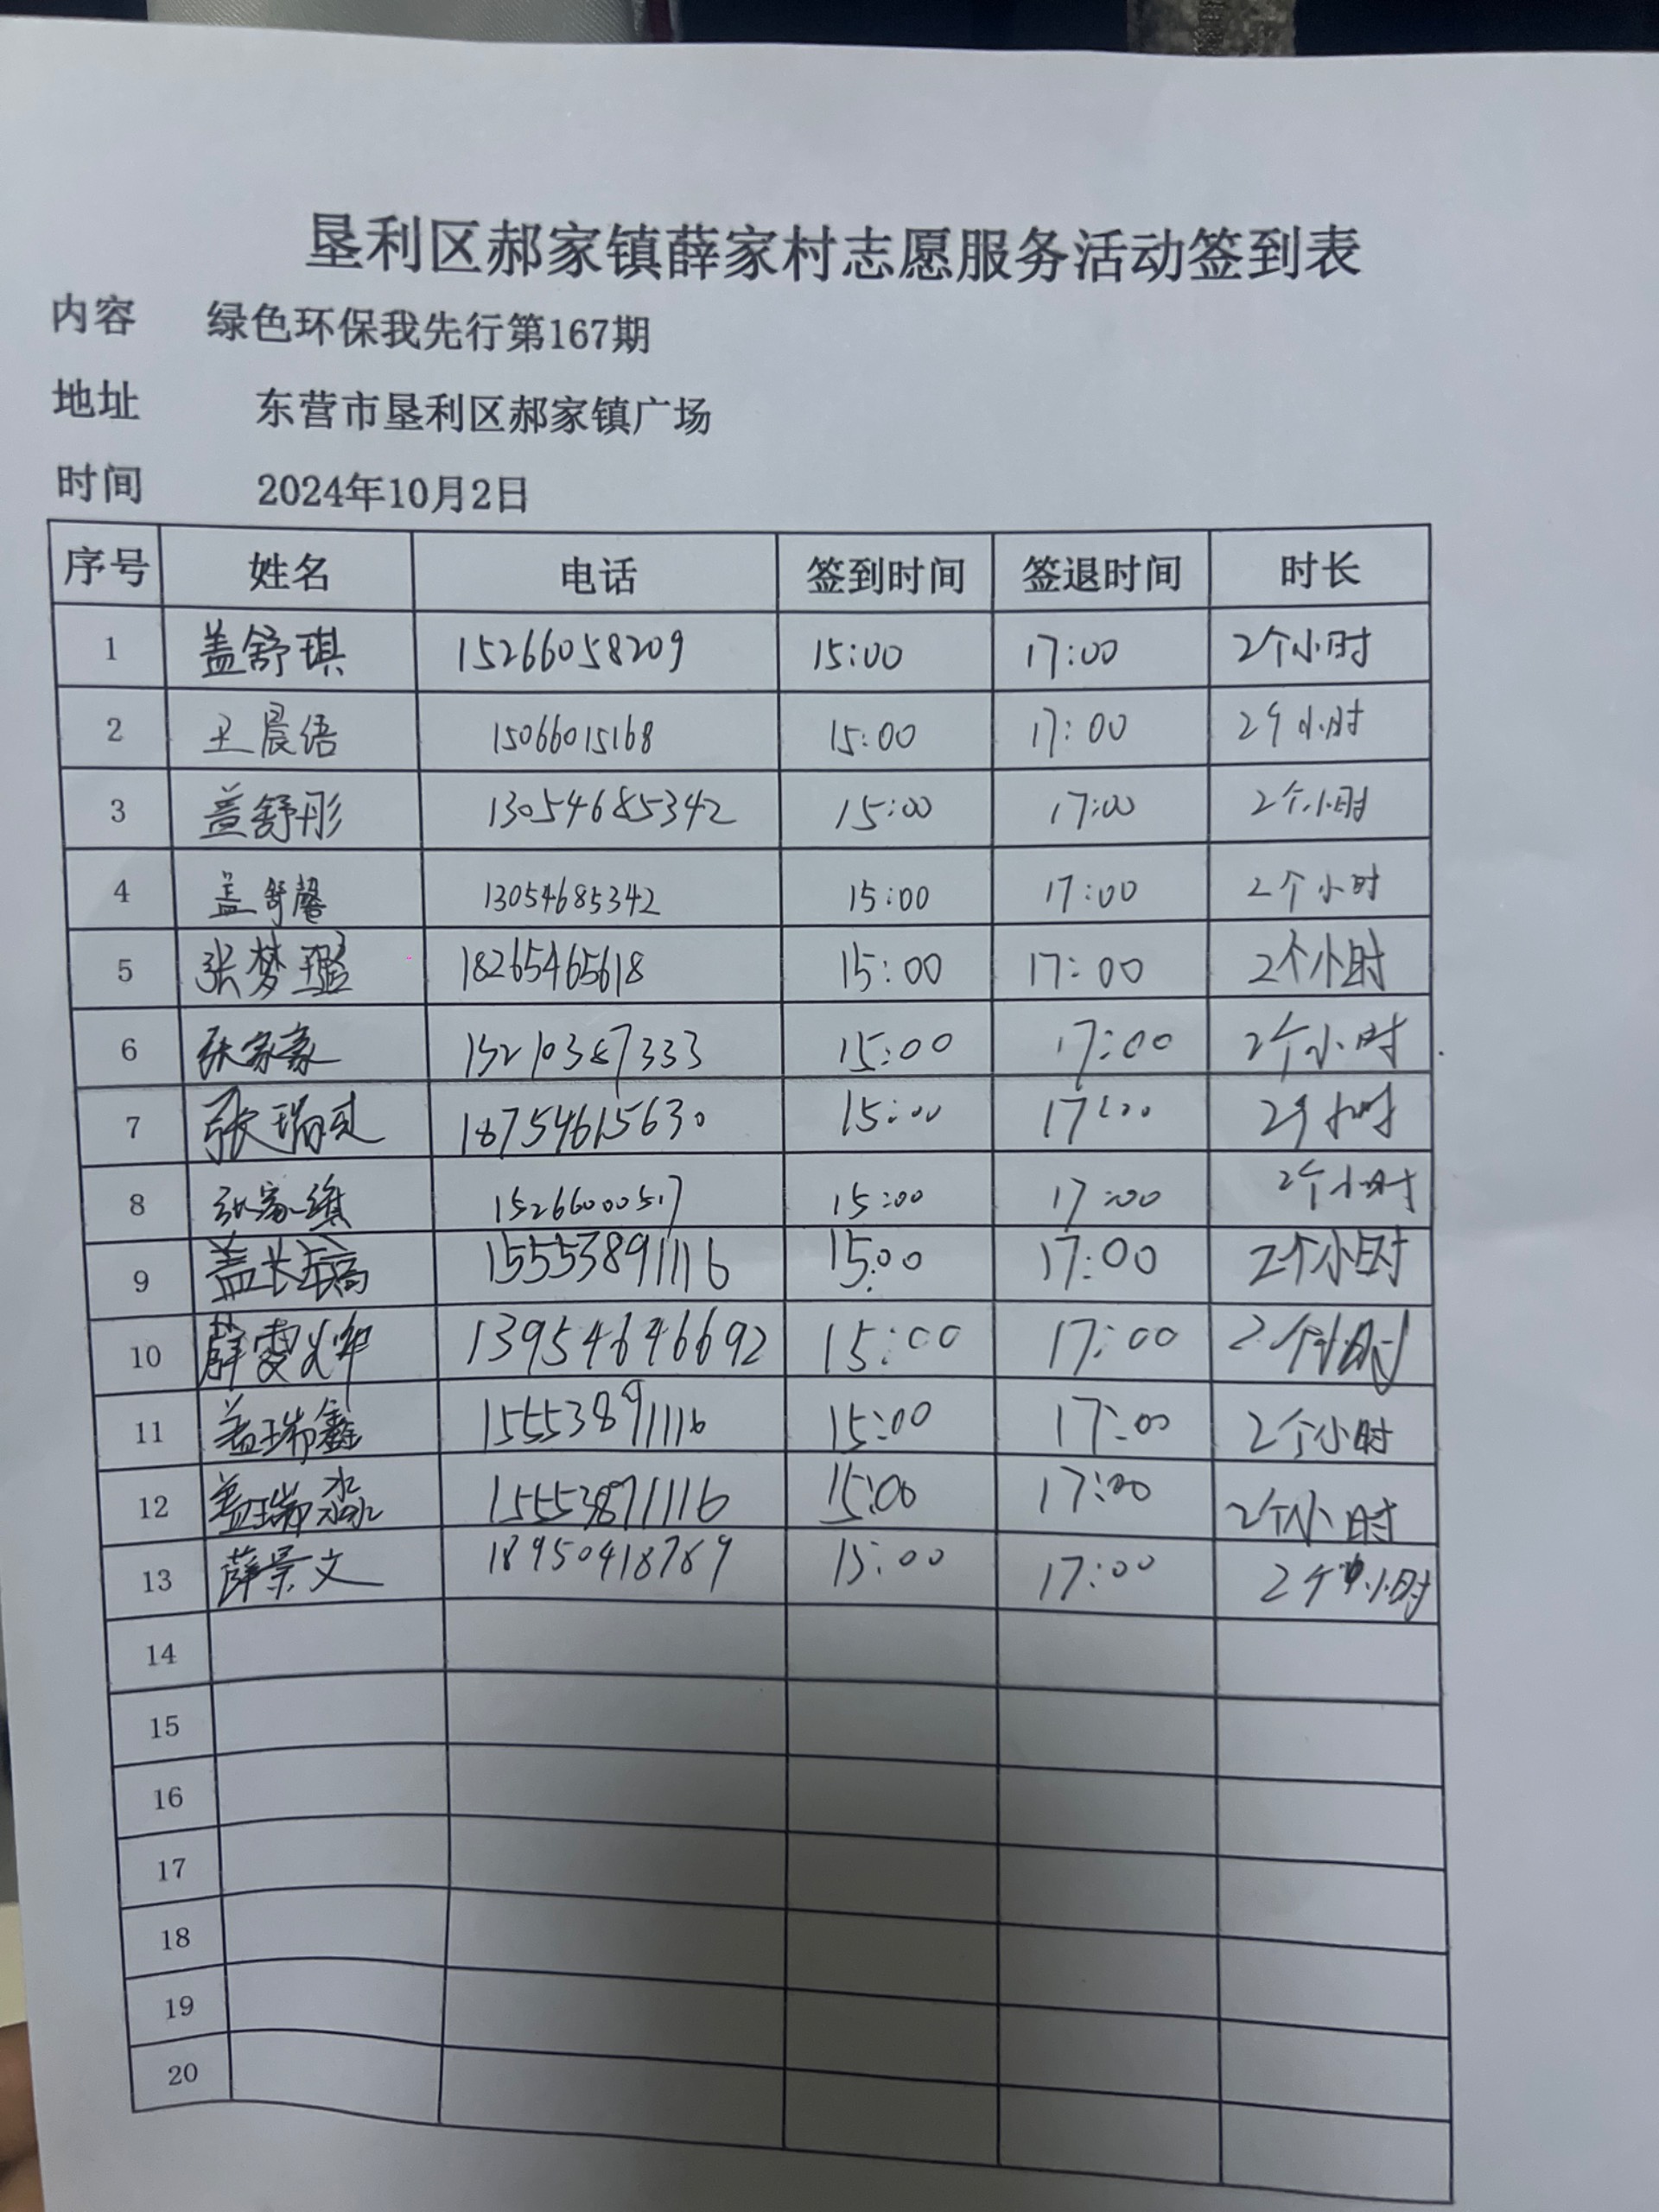 垦利区郝家镇薛家村志愿服务活动签到表
内容 绿色环保我先行第167期
地址 东营市垦利区郝家镇广场
时间 2024年10月2日
序号 姓名 电话 签到时间 签退时间 时长
1 盖舒琪 15266058209 15:00 17:00 2个小时
2 王晨语 15066015168 15:00 17:00 2个小时
3 盖舒彤 13054685342 15:00 17:00 2个小时
4 盖舒馨 13054685342 15:00 17:00 2个小时
5 张梦璐 18265465618 15:00 17:00 2个小时
6 张家豪 15210387333 15:00 17:00 2个小时
7 张瑞 18754615630 15:00 17:00 2个小时
8 张家 15266000517 15:00 17:00 2个小时
9 盖长 15553891116 15:00 17:00 2个小时
10 薛雯烨 13954646692 15:00 17:00 2个小时
11 盖瑞鑫 15553891116 15:00 17:00 2个小时
12 盖瑞淼 15553871116 15:00 17:00 2个小时
13 薛景文 18950418789 15:00 17:00 2个小时
14
15
16
17
18
19
20